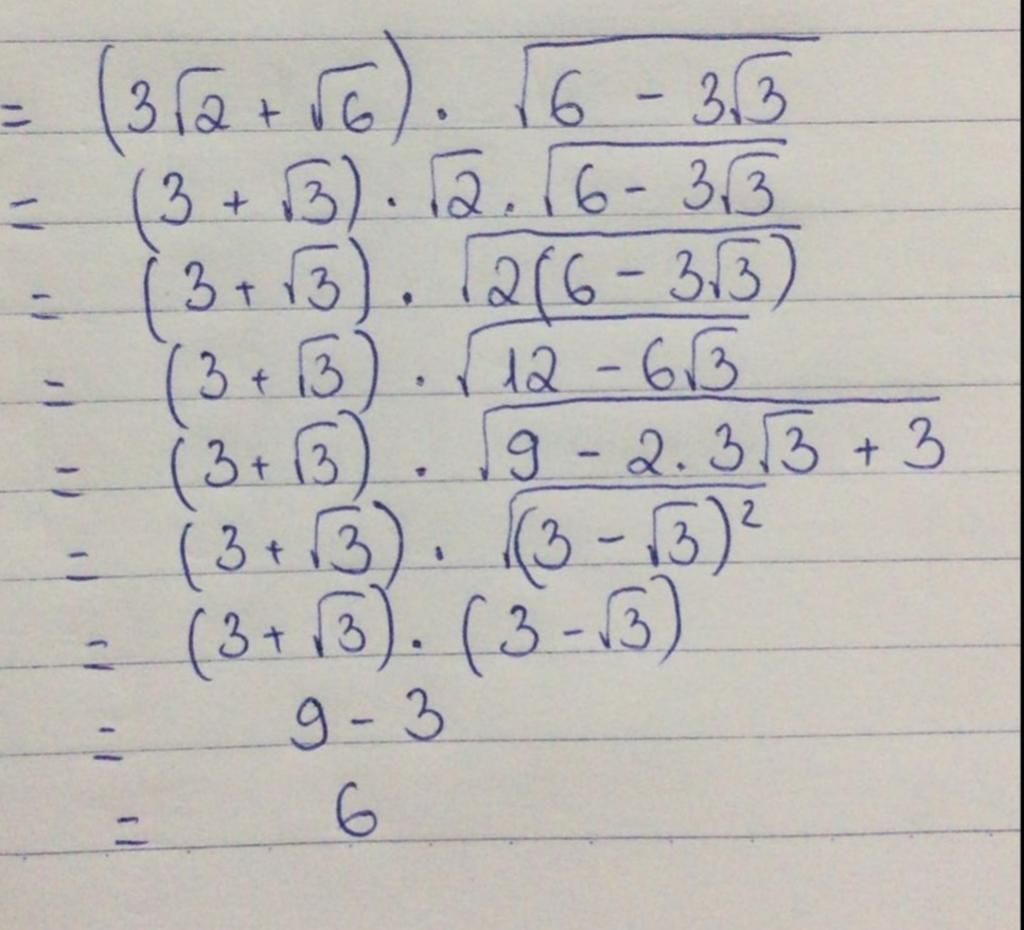 = (3√2 + √6) . √(6 - 3√3)
= (3 + √3) . √2 . √(6 - 3√3)
= (3 + √3) . √(2(6 - 3√3))
= (3 + √3) . √(12 - 6√3)
= (3 + √3) . √(9 - 2.3√3 + 3)
= (3 + √3) . √((3 - √3)²)
= (3 + √3) . (3 - √3)
= 9 - 3
= 6